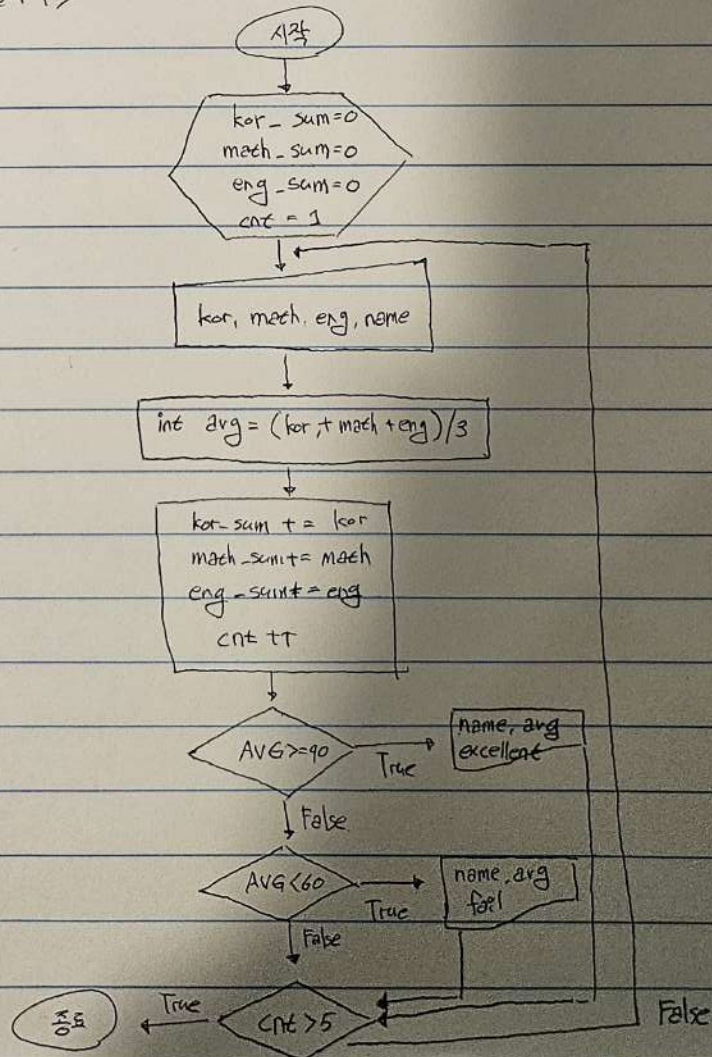 시작
kor_sum=0
math_sum=0
eng_sum=0
cnt = 1
kor, math, eng, name
int avg = (kor + math + eng)/3
kor_sum += kor
math_sum += math
eng_sum += eng
cnt ++
AVG>=90
True
name, avg
excellent
False
AVG<60
True
name, avg
fail
False
cnt >5
True
종료
False